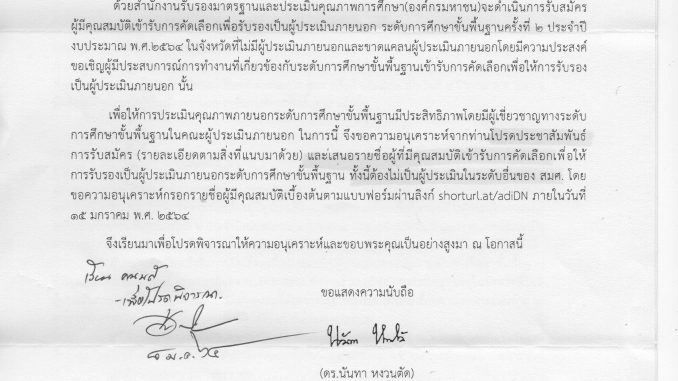 ด้วยสำนักงานรับรองมาตรฐานและประเมินคุณภาพการศึกษา(องค์กรมหาชน)จะดำเนินการรับสมัคร
ผู้มีคุณสมบัติเข้ารับการคัดเลือกเพื่อรับรองเป็นผู้ประเมินภายนอก ระดับการศึกษาขั้นพื้นฐานครั้งที่ ๒ ประจำปี
งบประมาณ พ.ศ.๒๕๖๔ ในจังหวัดที่ไม่มีผู้ประเมินภายนอกและขาดแคลนผู้ประเมินภายนอกโดยมีความประสงค์
ขอเชิญผู้มีประสบการณ์การทำงานที่เกี่ยวข้องกับระดับการศึกษาขั้นพื้นฐานเข้ารับการคัดเลือกเพื่อให้การรับรอง
เป็นผู้ประเมินภายนอก นั้น
เพื่อให้การประเมินคุณภาพภายนอกระดับการศึกษาขั้นพื้นฐานมีประสิทธิภาพโดยมีผู้เชี่ยวชาญทางระดับ
การศึกษาขั้นพื้นฐานในคณะผู้ประเมินภายนอก ในการนี้ จึงขอความอนุเคราะห์จากท่านโปรดประชาสัมพันธ์
การรับสมัคร (รายละเอียดตามสิ่งที่แนบมาด้วย) และเสนอรายชื่อผู้ที่มีคุณสมบัติเข้ารับการคัดเลือกเพื่อให้
การรับรองเป็นผู้ประเมินภายนอกระดับการศึกษาขั้นพื้นฐาน ทั้งนี้ต้องไม่เป็นผู้ประเมินในระดับอื่นของ สมศ. โดย
ขอความอนุเคราะห์กรอกรายชื่อผู้มีคุณสมบัติเบื้องต้นตามแบบฟอร์มผ่านลิงก์ shorturl.at/adiDN ภายในวันที่
๑๕ มกราคม พ.ศ. ๒๕๖๔
จึงเรียนมาเพื่อโปรดพิจารณาให้ความอนุเคราะห์และขอบพระคุณเป็นอย่างสูงมา ณ โอกาสนี้
เรียน คณบดี
-เพื่อโปรดพิจารณา.
ขอแสดงความนับถือ
(ดร.นันทา หงวนตัด)